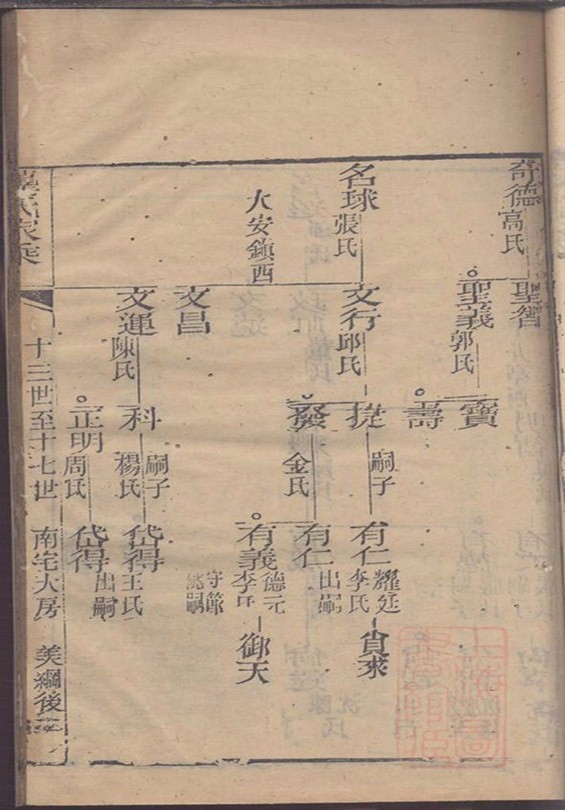 奇德 高氏
聖智
聖義 郭氏
寶
壽
名球 張氏
大安鎮西
文行 邱氏
提 嗣子
有仁 耀廷 李氏
貪來
發 金氏
有仁 出嗣
有義 德元 李氏
守節
御天
文昌
文運 陳氏
科 嗣子 楊氏
岱得 王氏
正明 周氏
岱得 出嗣
氏家乘
十三世至十七世
南宅大房
美綱後